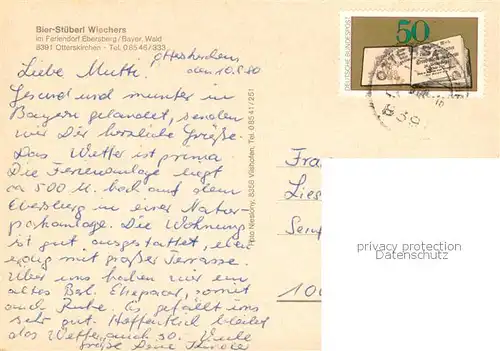 Bier-Stüberl Wiechers
im Feriendorf Ebersberg/Bayer. Wald
8391 Otterskirchen - Tel. 0 85 46 / 333
Otterskirchen
den 10.8.80
Liebe Mutti.
Gesund und munter in
Bayern gelandet, senden
wir Dir herzliche Grüße.
Das Wetter ist prima
Die Ferienanlage liegt
ca 500 M. hoch auf dem
Ebersberg in einer Natur-
parkanlage. Die Wohnung
ist gut ausgestattet, eben
mit großer Terrasse.
Über uns haben wir ein
altes Ehepaar, somit
auch Ruhe. Es gefällt uns
sehr gut. Hoffentlich bleibt
das Wetter auch so. Viele
Grüße Deine Kinder
Foto Nelsbony, 8358 Vilshofen, Tel. 0 85 41 / 2 51
DEUTSCHE BUNDESPOST
50
839
Fra
Lies
100
privacy protection
Datenschutz